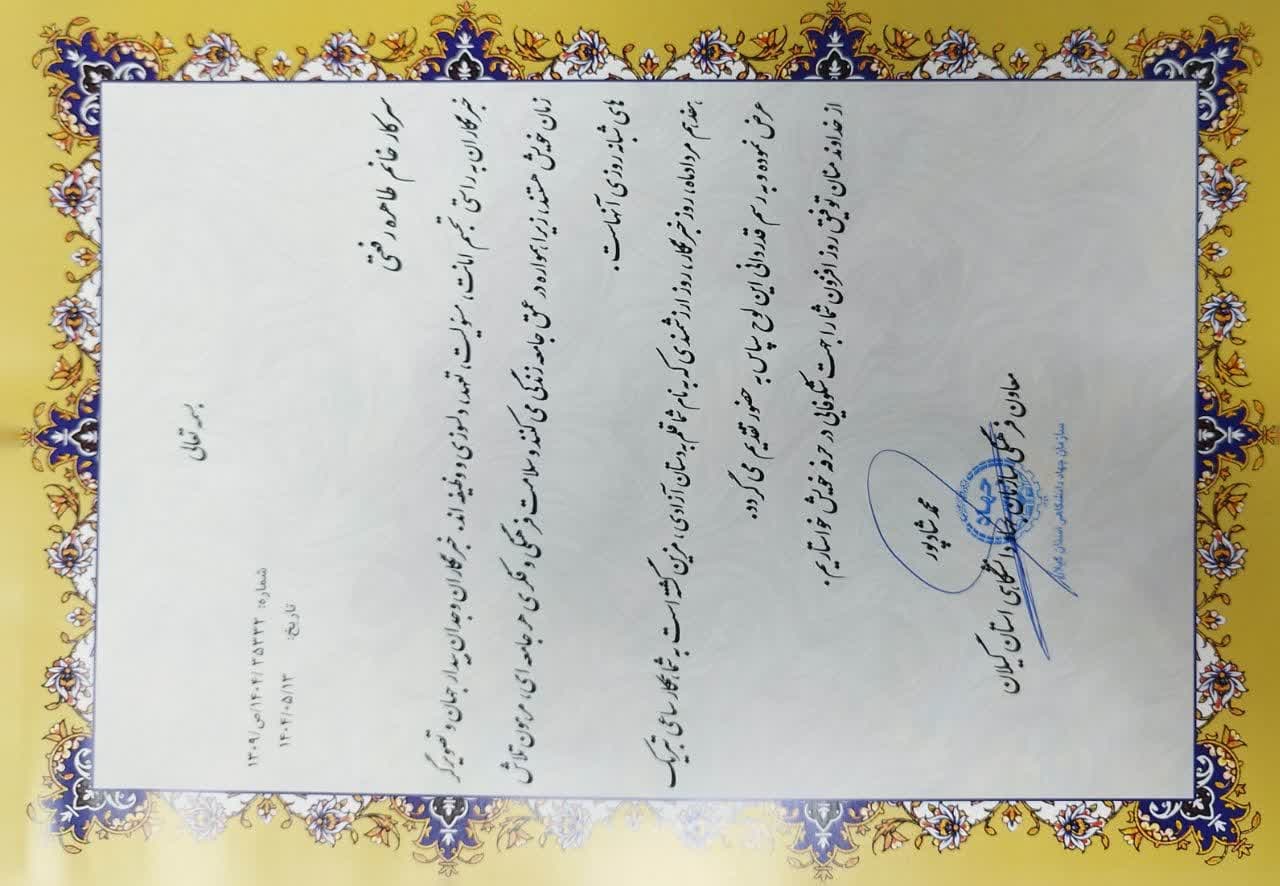 بسمه تعالی
شماره: ۱۴۰۴/۲۵۳۲۲/ص/۱۳۰۹
تاریخ: ۱۴۰۴/۰۵/۱۳
سرکار خانم طاهره رفعتی
خبرنگاران به راستی تجسم امانت، مسئولیت، تعهد، دلسوزی و وظیفه اند. خبرنگاران وجدان بیدار جهان و تصویرگر
زمان خویش هستند، زیرا همواره در عمق جامعه زندگی می کنند و سلامت فرهنگی و فکری هر جامعه ای، مرهون تلاش
های شبانه روزی آنهاست.
هفدهم مردادماه، روز خبرنگار، روز ارزشمندی که به نام شما قلم بدستان آزادی، مزین گشته است به شما همکار ساعی تبریک
عرض نموده و به رسم قدردانی این لوح سپاس به حضور تقدیم می گردد.
از خداوند منان توفیق روز افزون شما را جهت شکوفائی در حرفه خویش خواستاریم.
محمد شادپور
معاون فرهنگی سازمان جهاد دانشگاهی استان گیلان
جهاد
سازمان جهاد دانشگاهی استان گیلان